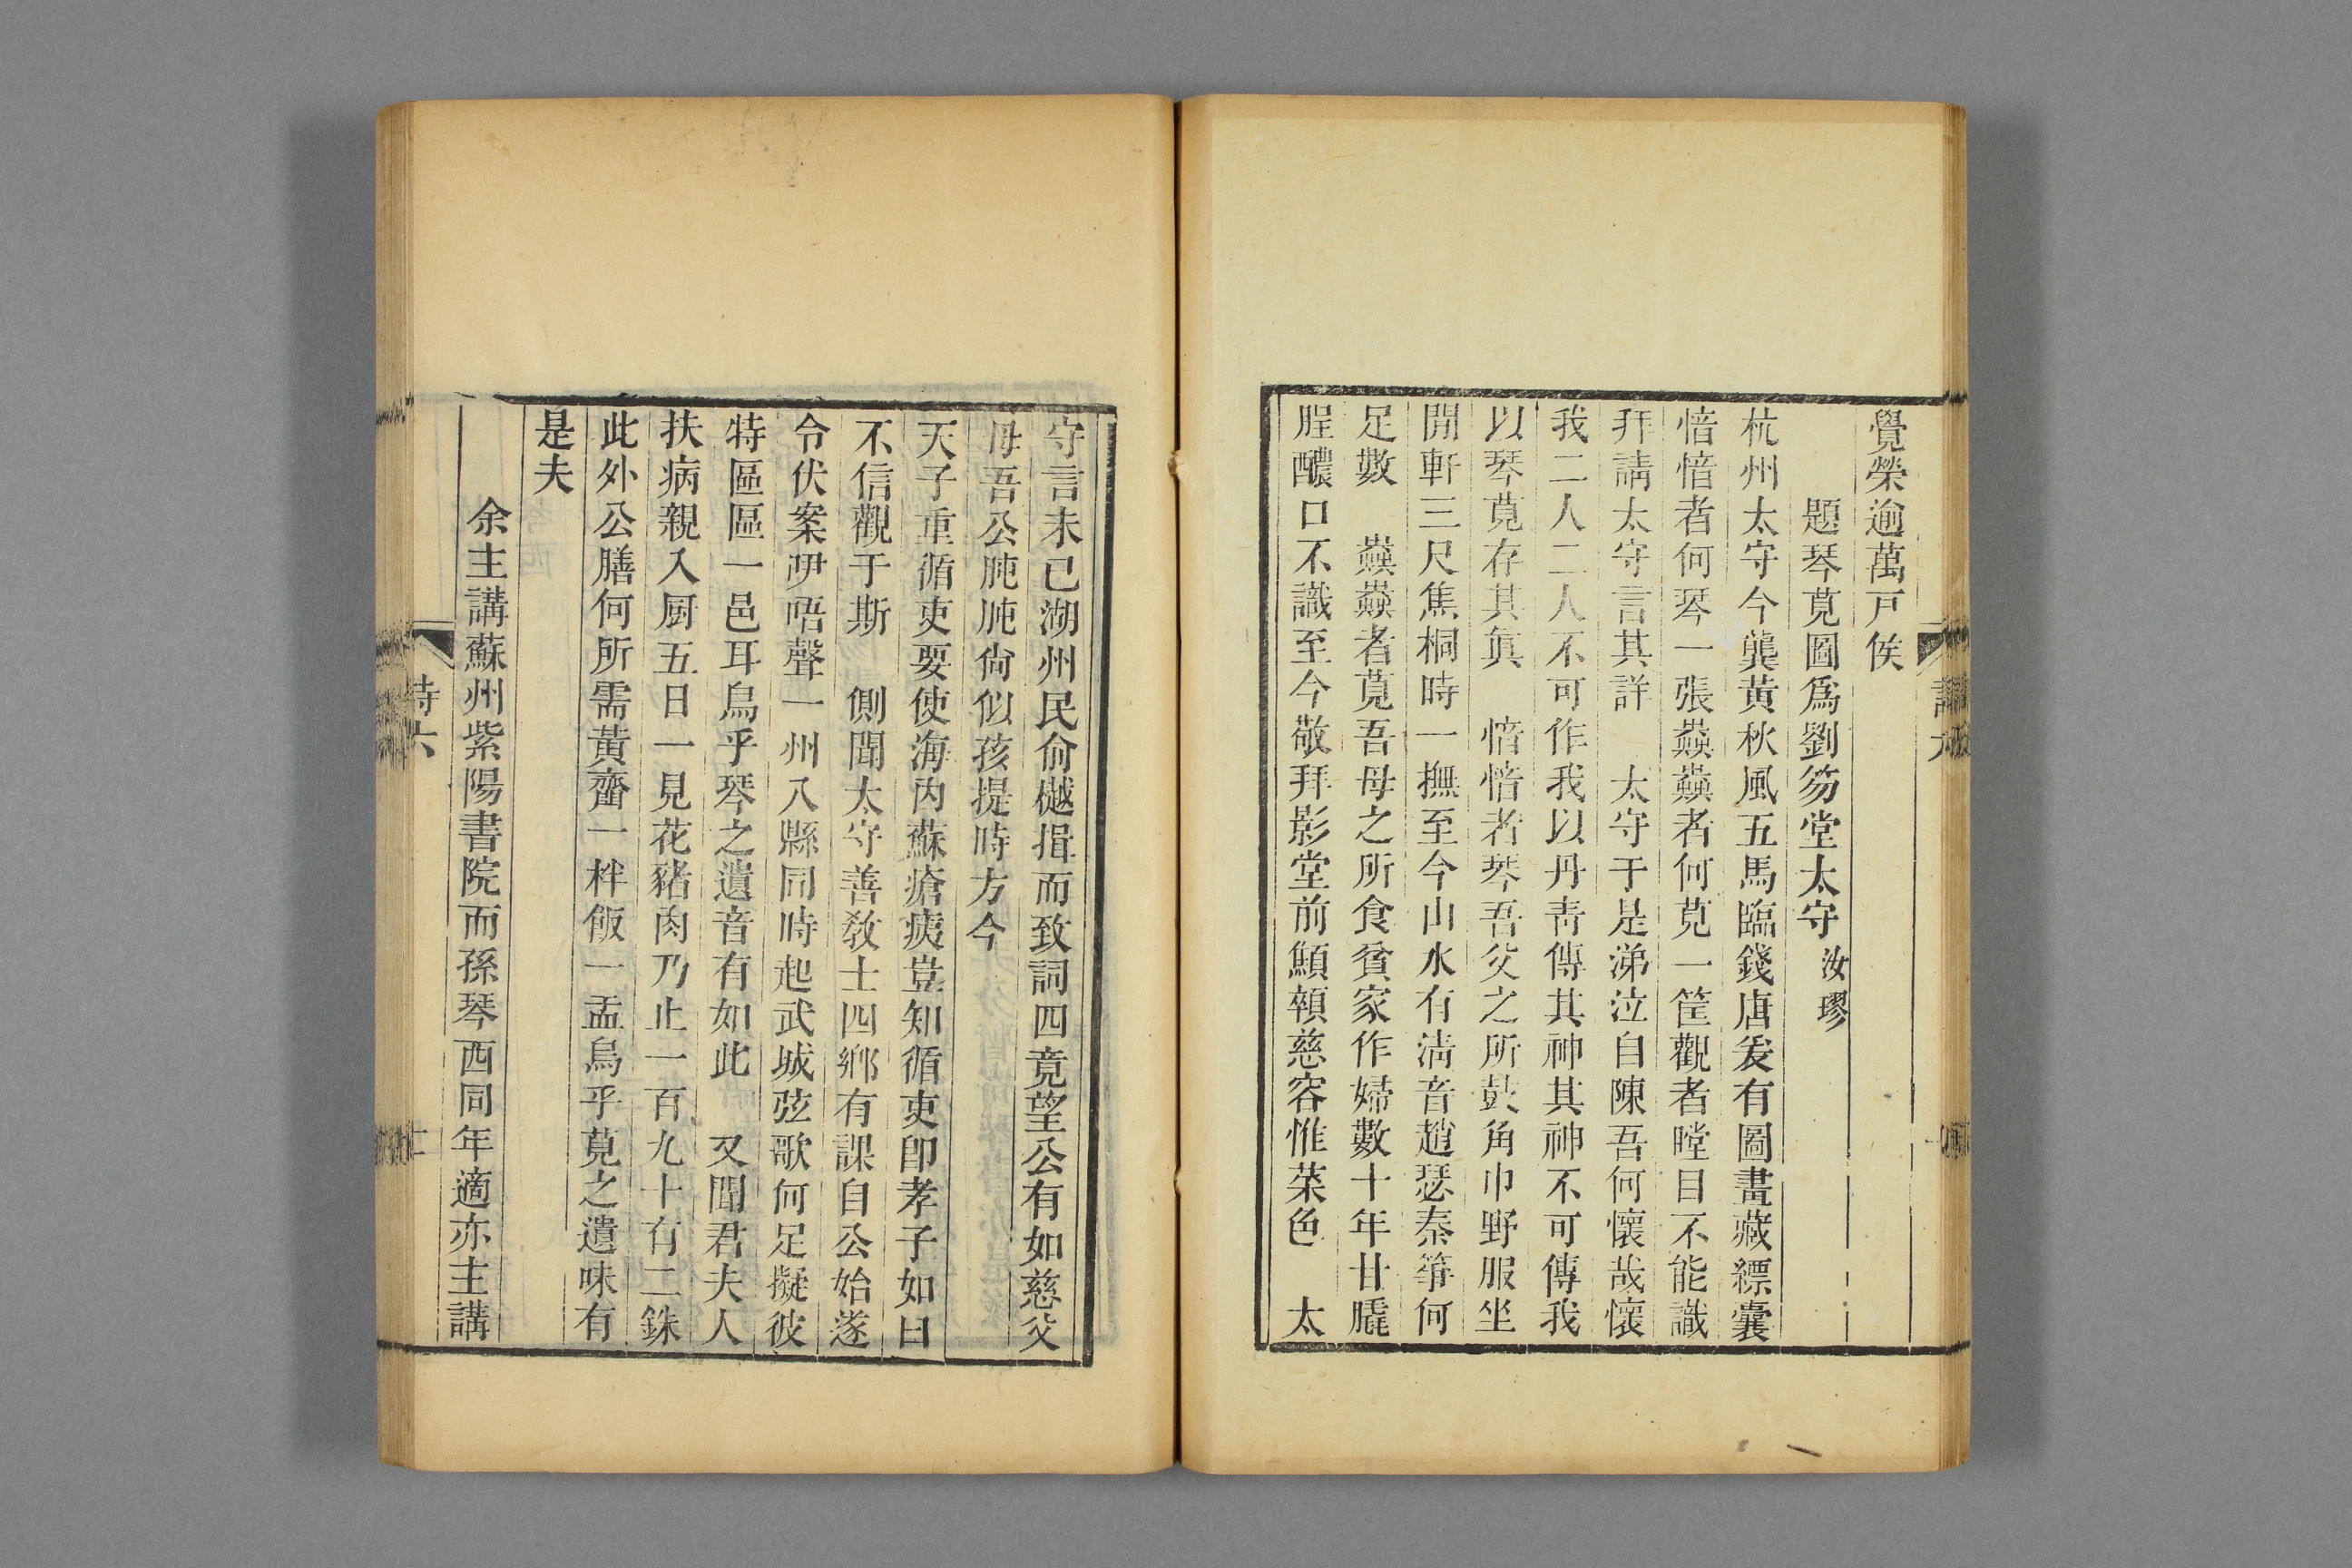 覺榮逾萬戸侯
題琴莧圖爲劉笏堂太守汝璆
杭州太守今龔黃秋風五馬臨錢唐爰有圖畫藏縹囊
愔愔者何琴一張蕤蕤者何莧一筐觀者瞠目不能識
拜請太守言其詳　太守于是涕泣自陳吾何懷哉懷
我二人二人不可作我以丹青傳其神其神不可傳我
以琴莧存其眞　愔愔者琴吾父之所鼓角巾野服坐
開軒三尺焦桐時一撫至今山水有淸音趙瑟秦箏何
足數　者莧吾母之所食貧家作婦數十年甘
腥醲口不識至今敬拜影堂前顦顇慈容惟菜色　太
守言未已湖州民俞樾揖而致詞四竟望公有如慈父
母吾公肫肫尙似孩提時方今
天子重循吏要使海內蘇瘡痍豈知循吏卽孝子如曰
不信觀于斯　側聞太守善敎士四鄉有課自公始遂
令伏案咿唔聲一州八縣同時起武城弦歌何足擬彼
特區區一邑耳烏乎琴之遺音有如此　又聞君夫人
扶病親入厨五日一見花豬肉乃止一百九十有二銖
此外公膳何所需黃齏一柈飯一盂烏乎莧之遺味有
是夫
余主講蘇州紫陽書院而孫琴西同年適亦主講
詩六